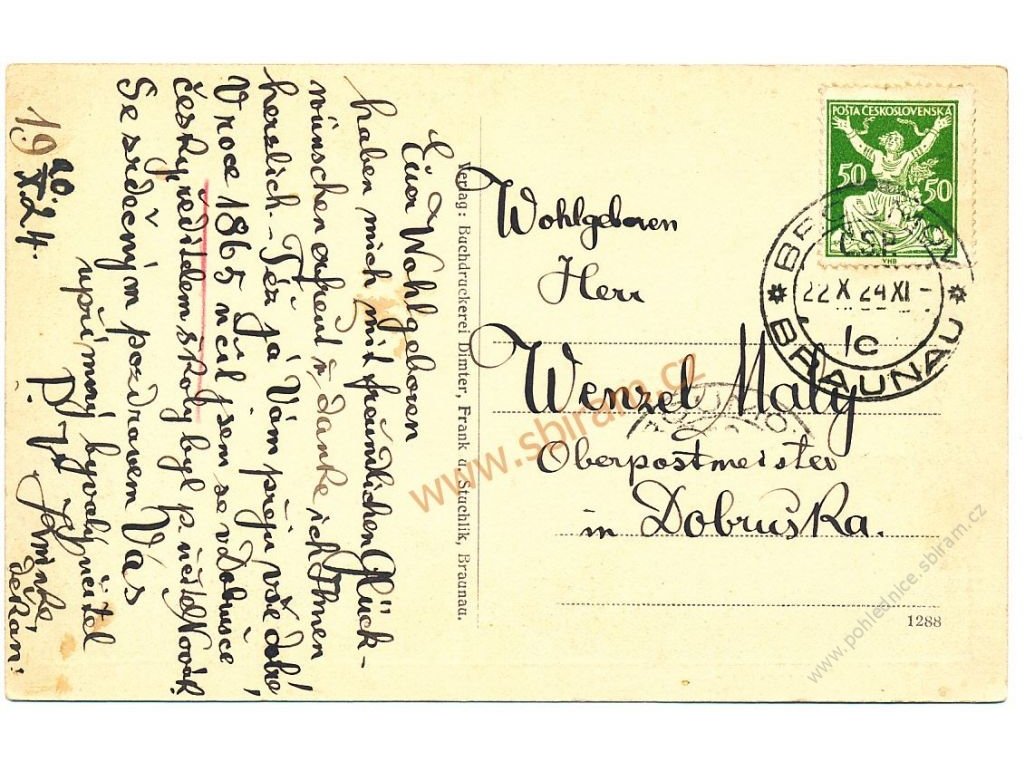 Euer Wohlgeboren
haben mich mit freundlichen Glück-
wünschen erfreut, danke ich Ihnen
herzlich – Též já Vám přeju vše dobré,
V roce 1865 učil jsem se v Dobrušce
česky, ředitelem školy byl p. učitel Novák
Se srdečným pozdravem Vás
upřímný bývalý učitel
děkan.
19 20/X 24.
Verlag: Buchdruckerei Dimter, Frank u. Stuchlik, Braunau.
Wohlgeboren
Herr
Wenzel Malý
Oberpostmeister
in Dobruška.
1288
POŠTA ČESKOSLOVENSKÁ
50 50
VHB
Č.S.P.
22 X 24 XI -
1c
BRAUNAU
www.sbiram.cz
www.pohlednice.sbiram.cz